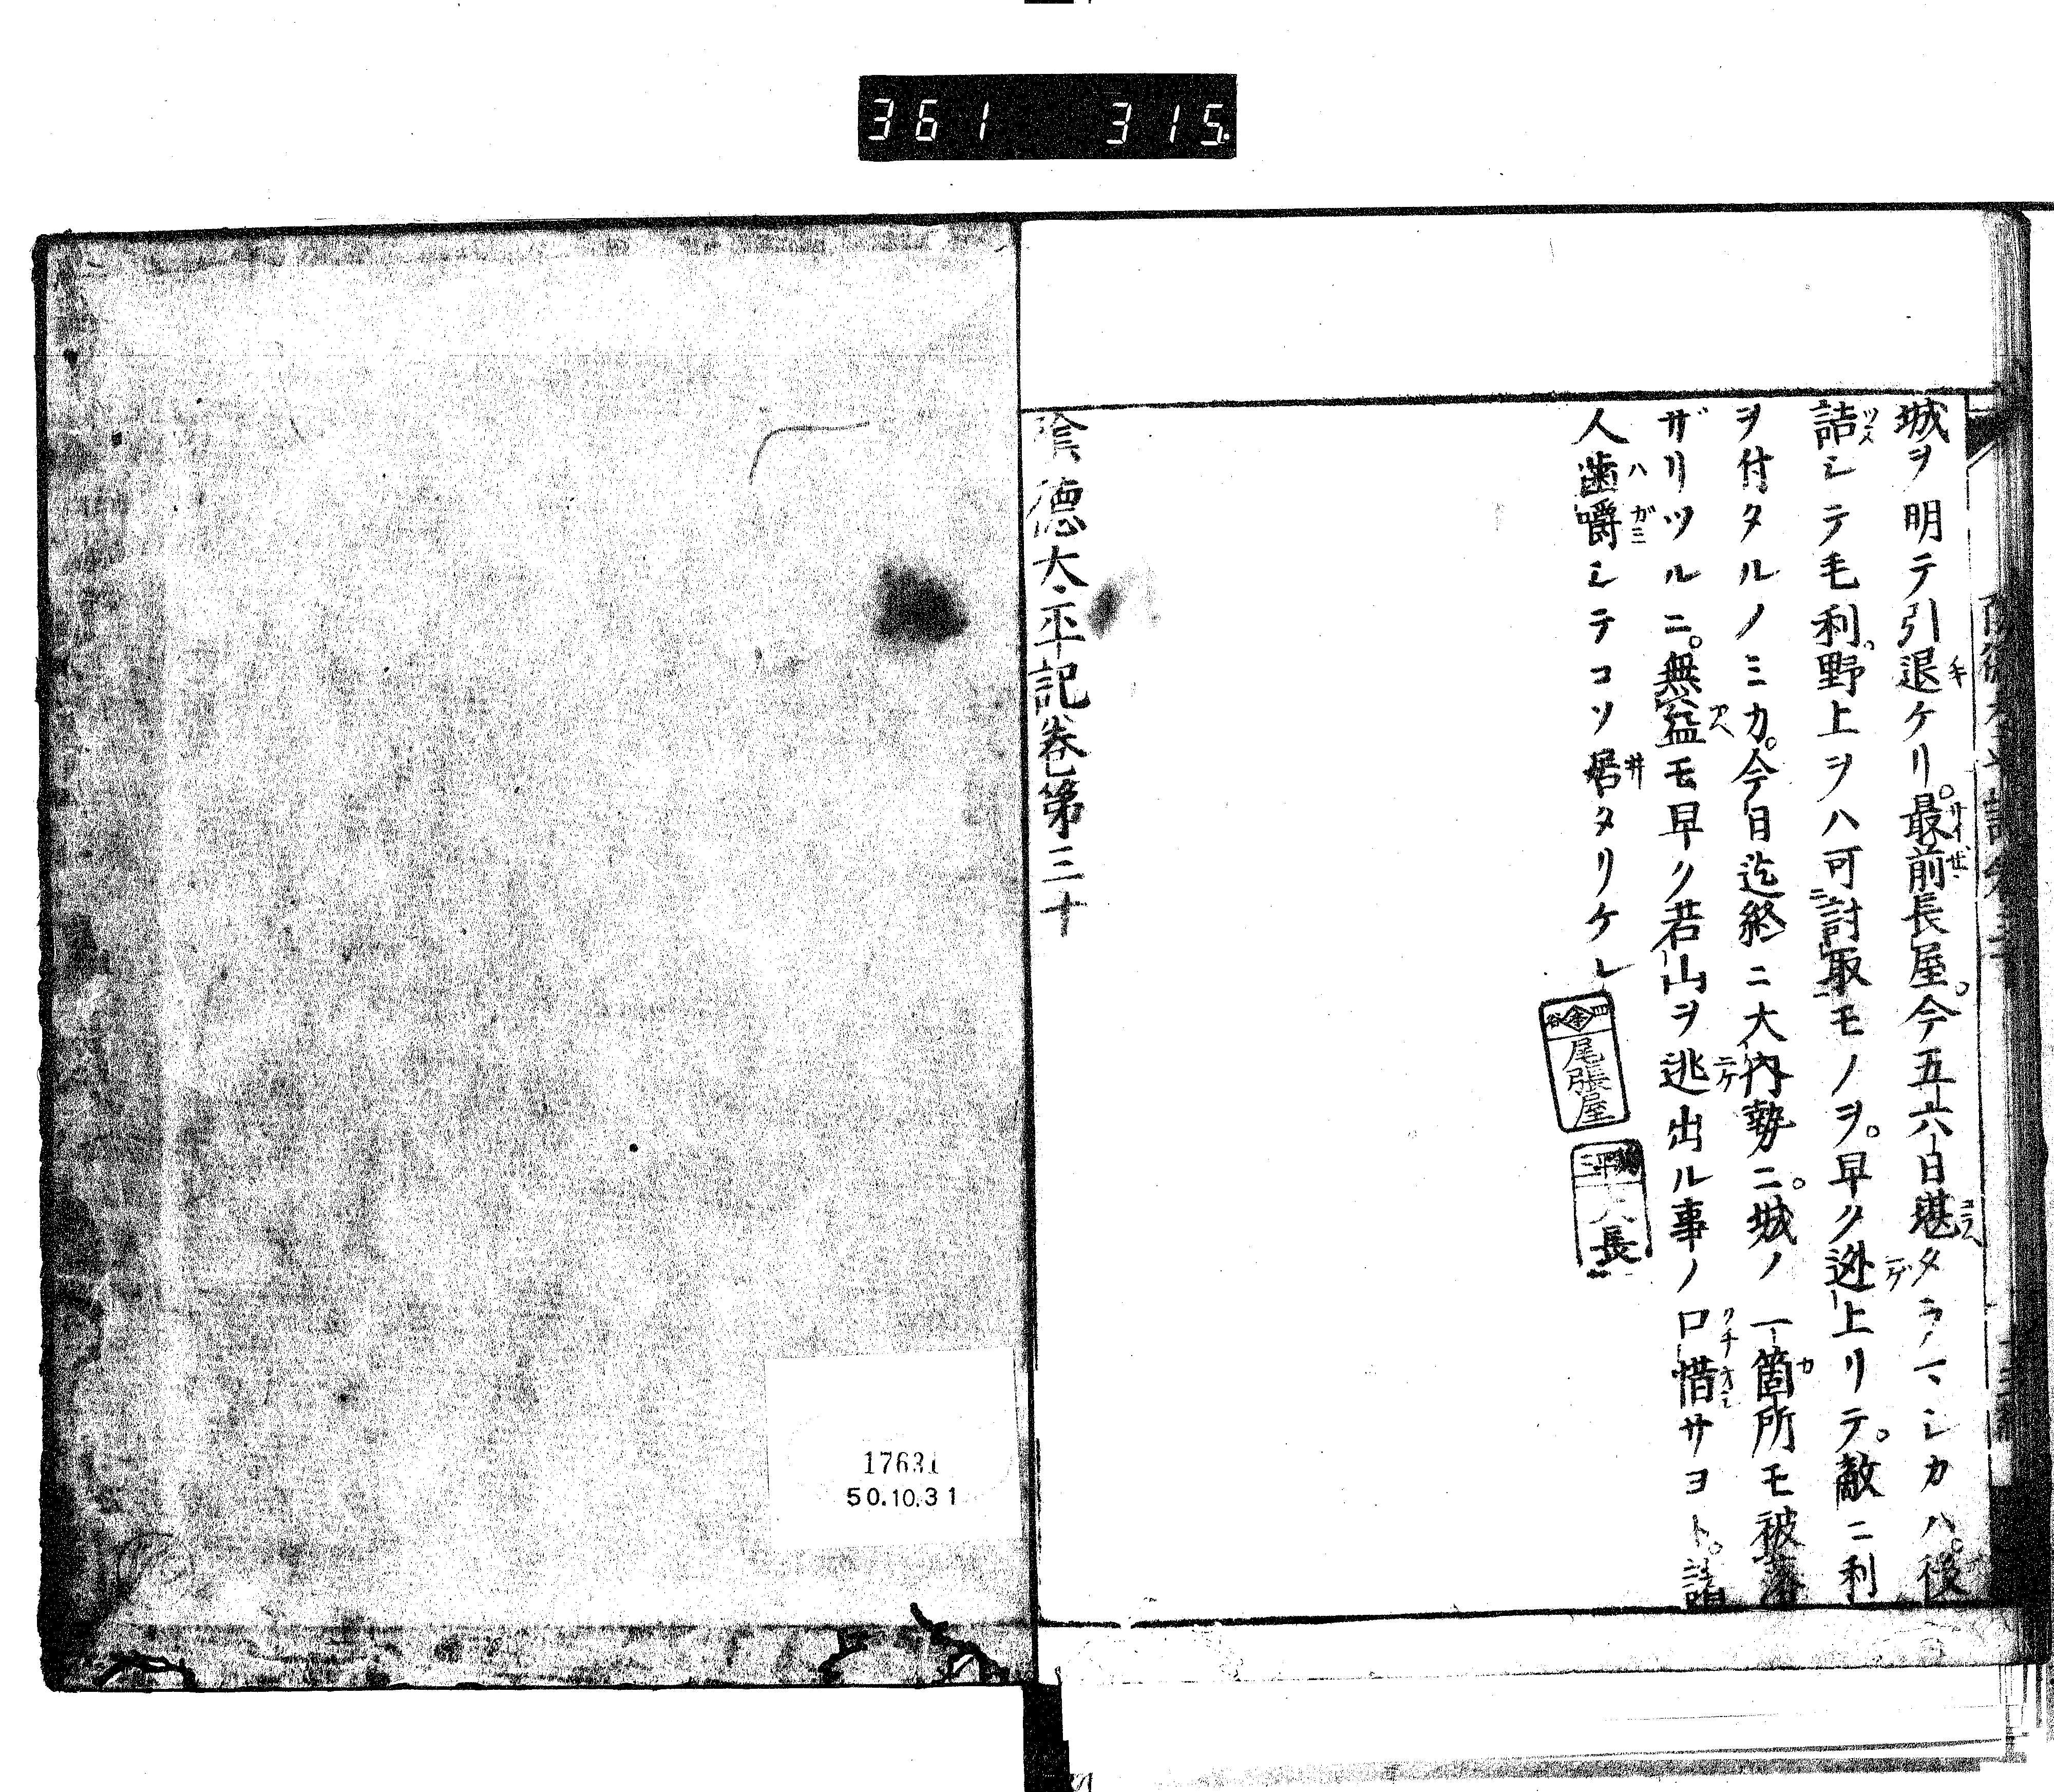 361 315
城ヲ明テ引退ケリ。最前長屋。今五六日堪タラマシカハ。後
詰シテ毛利野上ヲハ可討取モノヲ。早ク迯上リテ。敵ニ利
ヲ付タルノミカ。今日迄終ニ大内勢ニ。城ノ一箇所モ被落
ザリツルニ。無益モ早ク若山ヲ逃出ル事ノ口惜サヨト。諸
人歯嚼シテコソ居タリケレ
尾張屋
長
陰徳太平記巻第三十
17631
50.10.31